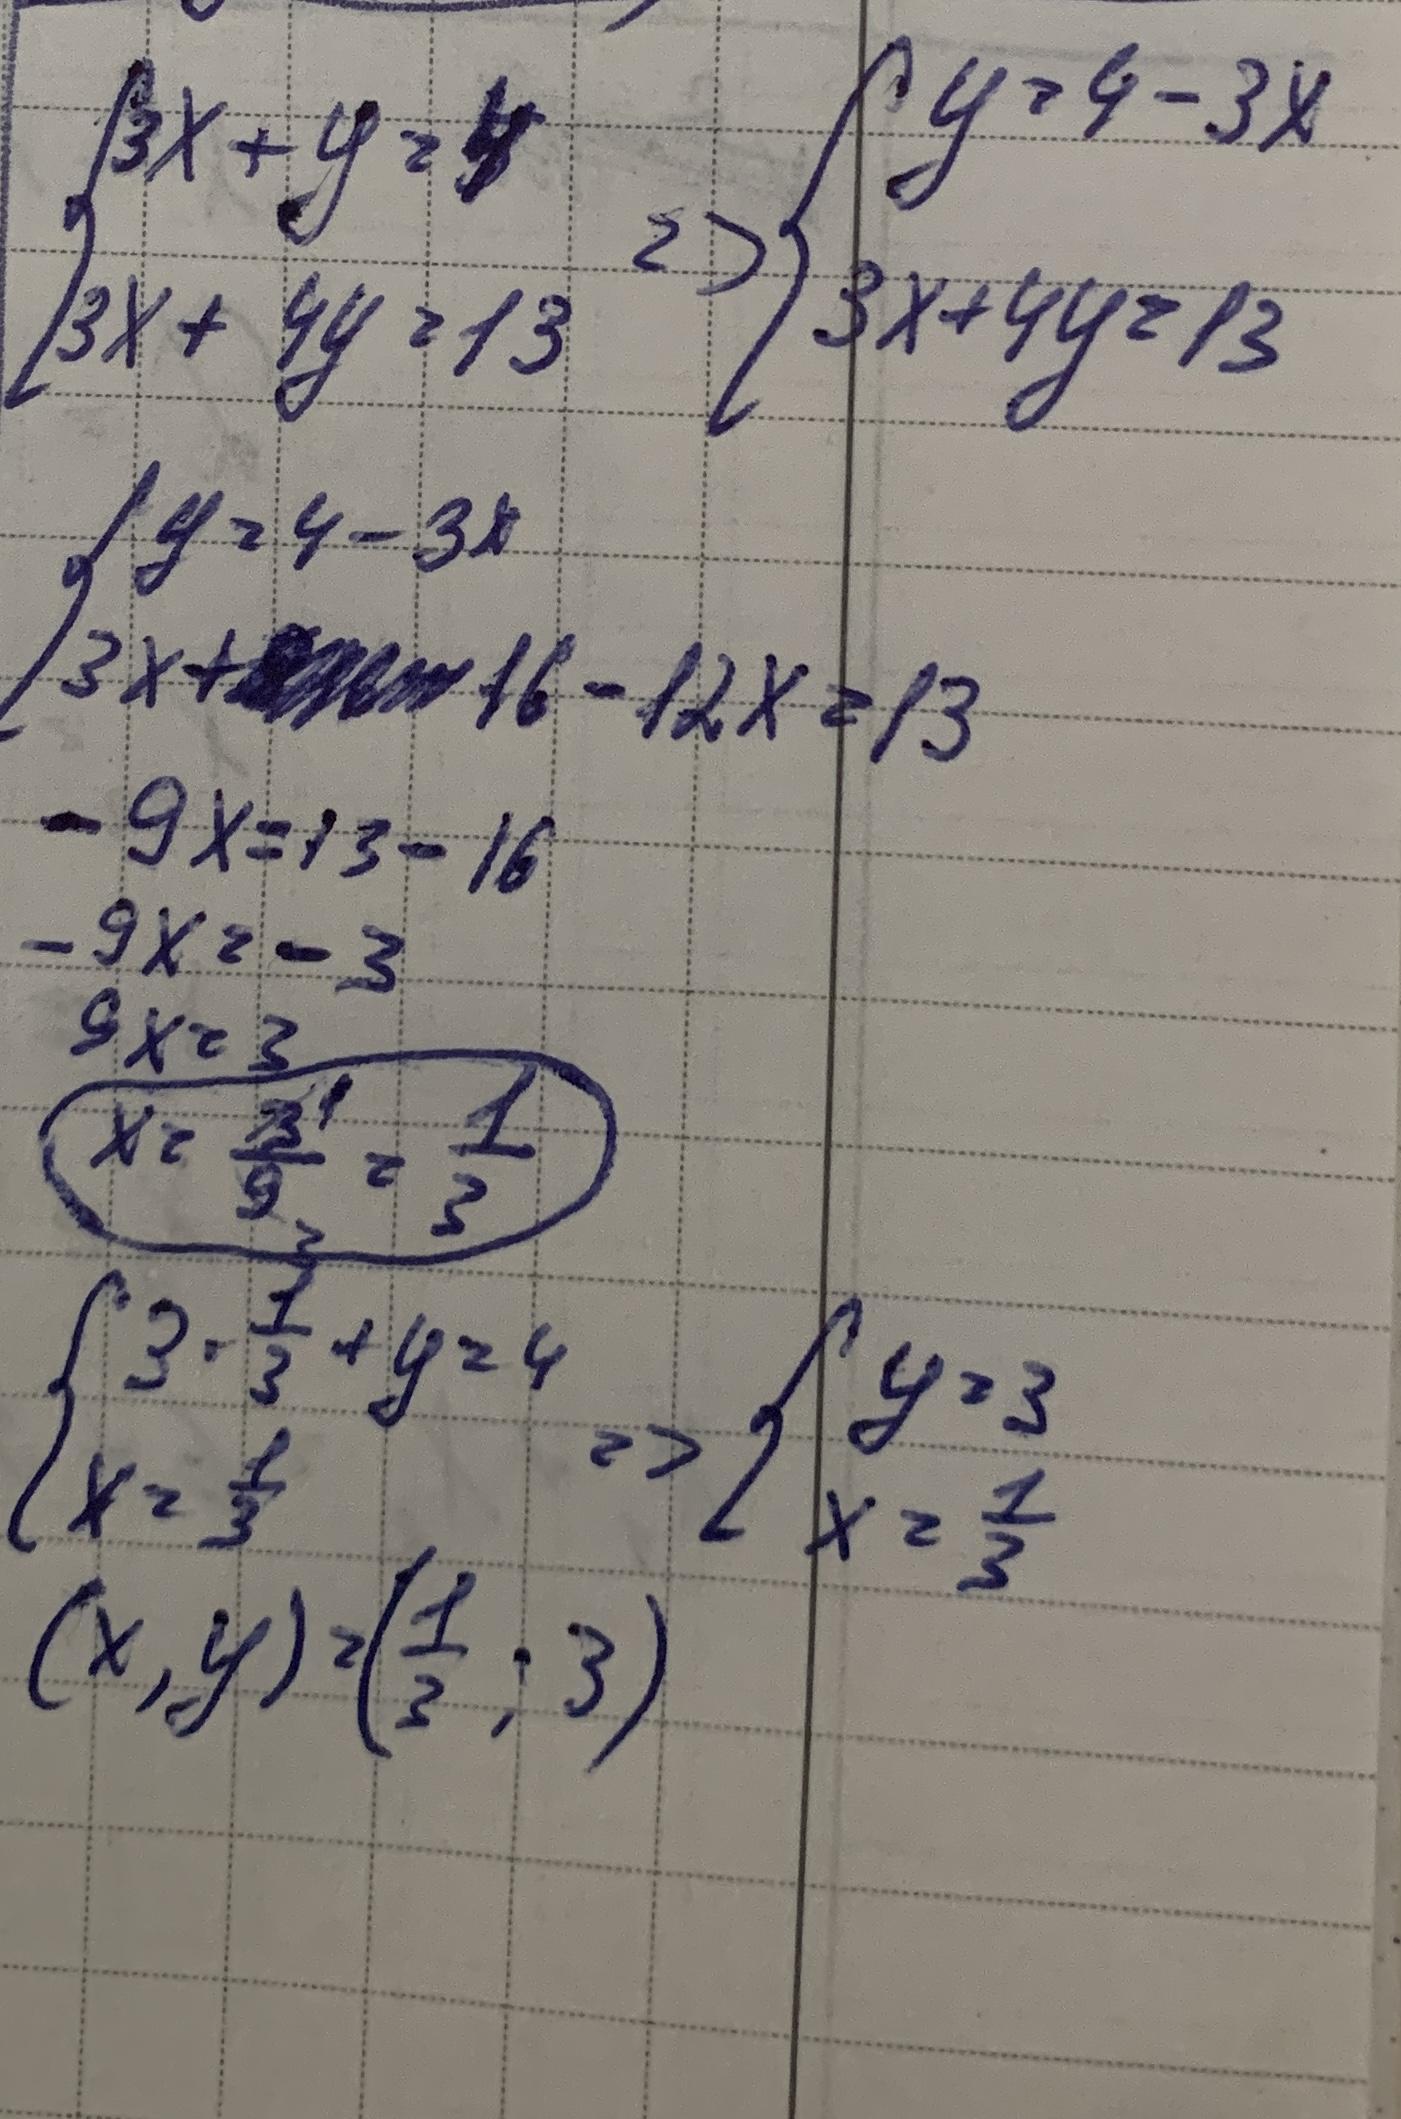 { 3x + y = 4 => { y = 4 - 3x
3x + 4y = 13 3x + 4y = 13
{ y = 4 - 3x
3x + 16 - 12x = 13
- 9x = 13 - 16
- 9x = - 3
9x = 3
x = 3/9 = 1/3
{ 3 · 1/3 + y = 4 => { y = 3
x = 1/3 x = 1/3
(x, y) = (1/3 ; 3)